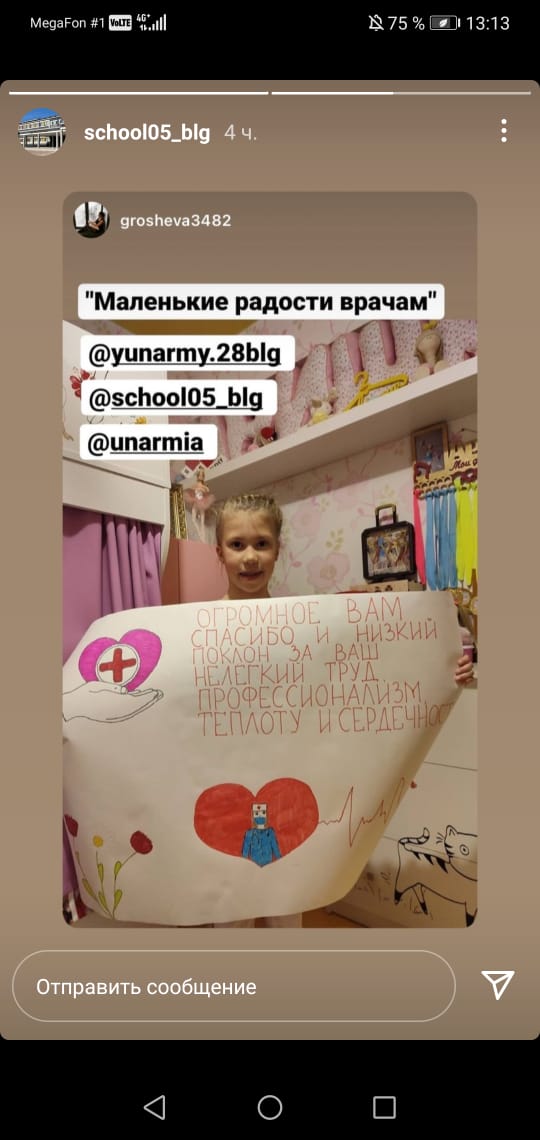 MegaFon #1 VoLTE 4G+ 75 % 13:13
school05_blg 4 ч.
grosheva3482
"Маленькие радости врачам"
@yunarmy.28blg
@school05_blg
@unarmia
Мои
ОГРОМНОЕ ВАМ
СПАСИБО И НИЗКИЙ
ПОКЛОН ЗА ВАШ
НЕЛЕГКИЙ ТРУД,
ПРОФЕССИОНАЛИЗМ,
ТЕПЛОТУ И СЕРДЕЧНОС
Отправить сообщение